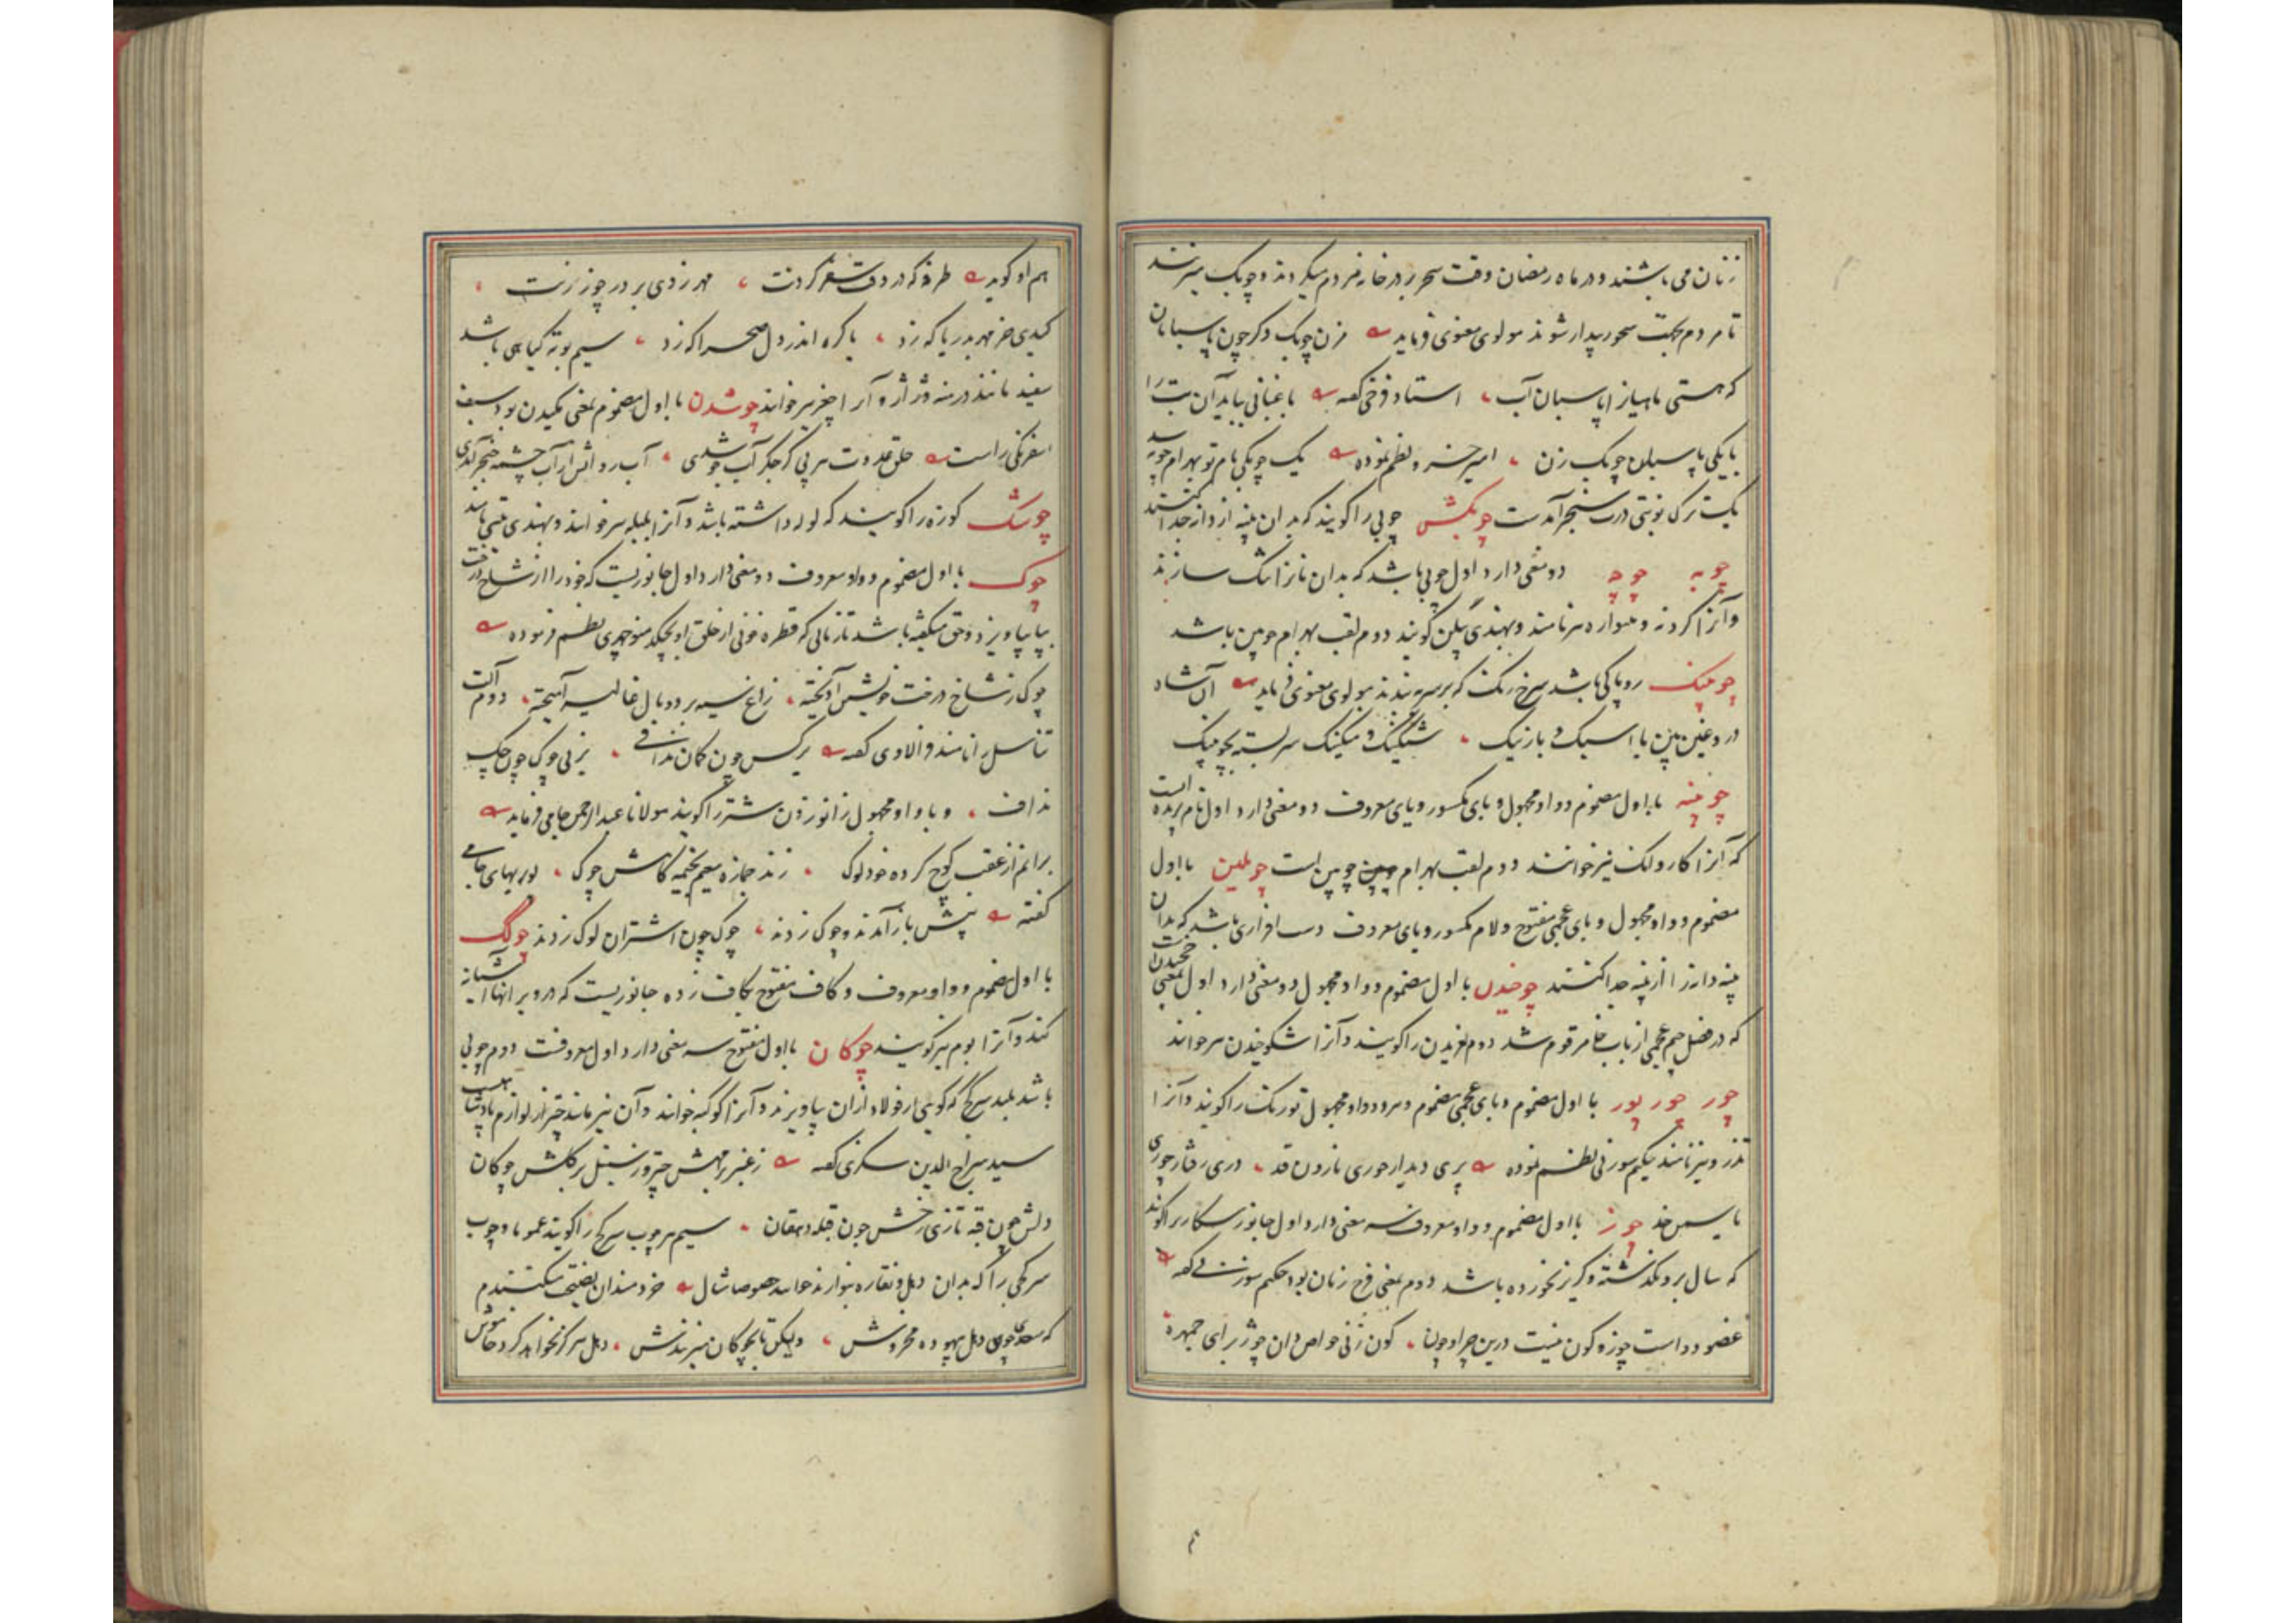 زنان می باشند و در ماه رمضان وقت سحر بر در خانه مردم میکردند و چوبک میزنند
تا مردم بجهت سحور بیدار شوند مولوی معنوی فرماید مزن چوبک دکر چون پاسبانان
که هستی ماهیان را پاسبان آب استاد فرخی گفته باغبانی باید آن بت را
با یکی پاسبان چوبک زن امیر خسرو نظم نموده یک چوبکی بام تو بهرام چوبه
یک ترک نوبتی درت سنجر آمدست چوبکش چوبی را کویند که بدان پنبه از دانه جدا کنند
چوبه چوچه دو معنی دارد اول چوبی باشد که بدان نانرا تنک سازند
و آنرا کردنه و نیواره نیز نامند و بهندی بیلن کویند دوم لقب بهرام چوبین باشد
چوپینک روپاکی باشد سرخ رنک که بر سر بندند مولوی معنوی فرماید آن شاه
دروغین بین با اسبک و بازینک شنکینک و منکینک سر بسته بچوپینک
چوپینه با اول مضموم و واو مجهول و بای مکسور و یای معروف دو معنی دارد اول نام پرنده است
که آنرا کاروانک نیز خوانند دوم لقب بهرام چوبین است چوپلین با اول
مضموم و واو مجهول و بای عجمی مفتوح و لام مکسور و یای معروف دست افزاری باشد که بدان
پنبه دانه را از پنبه جدا کنند چوخیدن با اول مضموم و واو مجهول دو معنی دارد اول بمعنی چخیدن است
که در فصل جیم عجمی از باب خا مرقوم شد دوم لغزیدن را کویند و آنرا شکوخیدن نیز خوانند
چور چور پور با اول مضموم و بای عجمی مضموم و هر دو واو مجهول تورنک را کویند و آنرا
تذرو نیز نامند حکیم سوزنی نظم نموده پری دیدار حوری نارون قد دری رفتار چوری
یاسمن خد چوز با اول مضموم و واو معروف سه معنی دارد اول جانور شکاریرا کویند
که سال برو نکذشته و کریز نخورده باشد دوم بمعنی فرج زنان بود حکیم سوزنی گفته
عضو دو است چوزه و کون نیست درین چرا و چون کون ز پی خواص دان چوز برای جمهره
هم او کوید طرفه که در دو وقت شعر کردنت مهر زدی بر در چوز زنت
کیدی خر مهره بدریا که زد یا کره اندر دل صحرا که زد سیم بوته کیاهی باشد
سفید مانند درمنه و ژاژ و آنرا چغز نیز خوانند چوشدن با اول مضموم بمعنی مکیدن بود سیف
اسفرنکی راست حلق عدوت سربی کر جکر آب چوشدی آب رو انش از آب چشمه خنجر آمدی
چوشک کوزه را کویند که لوله داشته باشد و آنرا بلبله نیز خوانند و بهندی تتنی نامند
چوک با اول مضموم و واو معروف دو معنی دارد اول جانوریست که خود را از شاخ درخت
بپا بیاویزد و حق میکفته باشد تا زمانی که قطره خونی از حلق او بچکد منوچهری نظم فرموده
چوک ز شاخ درخت خویشتن آویخته زاغ سیه بر دو بال غالیه آمیخته دوم آلت
تناسل را نامند فرالاوی گفته بر کس چون کمان ندافی بز نی چوک چون چک
نداف و با واو مجهول زانو زدن شتر را کویند مولانا عبد الرحمن جامی فرماید
برانم از عقب کوچ کرده خود لوک زند جمازه سیم بخیمه کاهش چوک پور بهای جامی
گفته پیش باز آمدند و چوک زدند چوک چون اشتران لوک زدند چوکک
با اول مضموم و واو معروف و کاف مفتوح بکاف زده جانوریست که در ویرانها آشیانه
کند و آنرا بوم نیز کویند چوکان با اول مفتوح سه معنی دارد اول معروفست دوم چوبی
باشد بلند سرکج که کویی از فولاد از آن بیاویزند و آنرا کوکبه خوانند و آن نیز مانند چتر از لوازم پادشاهیست
سید سراج الدین سکزی گفته ز عنبر بر مهش چتر و ز سنبل بر کلش چوکان
دلش چون قبه تازی رخش چون قبله دهقان سیم هر چوب سرکج را کویند عموما و چوب
سرکجی را که بدان دهل و نقاره نوازند خوانند خصوصا مثال خردمندان نصیحت میکنندم
که سعدی چون دهل بیهوده مخروش ولیکن تا بچوکان میزنندش دهل هرکز نخواهد کرد خاموش